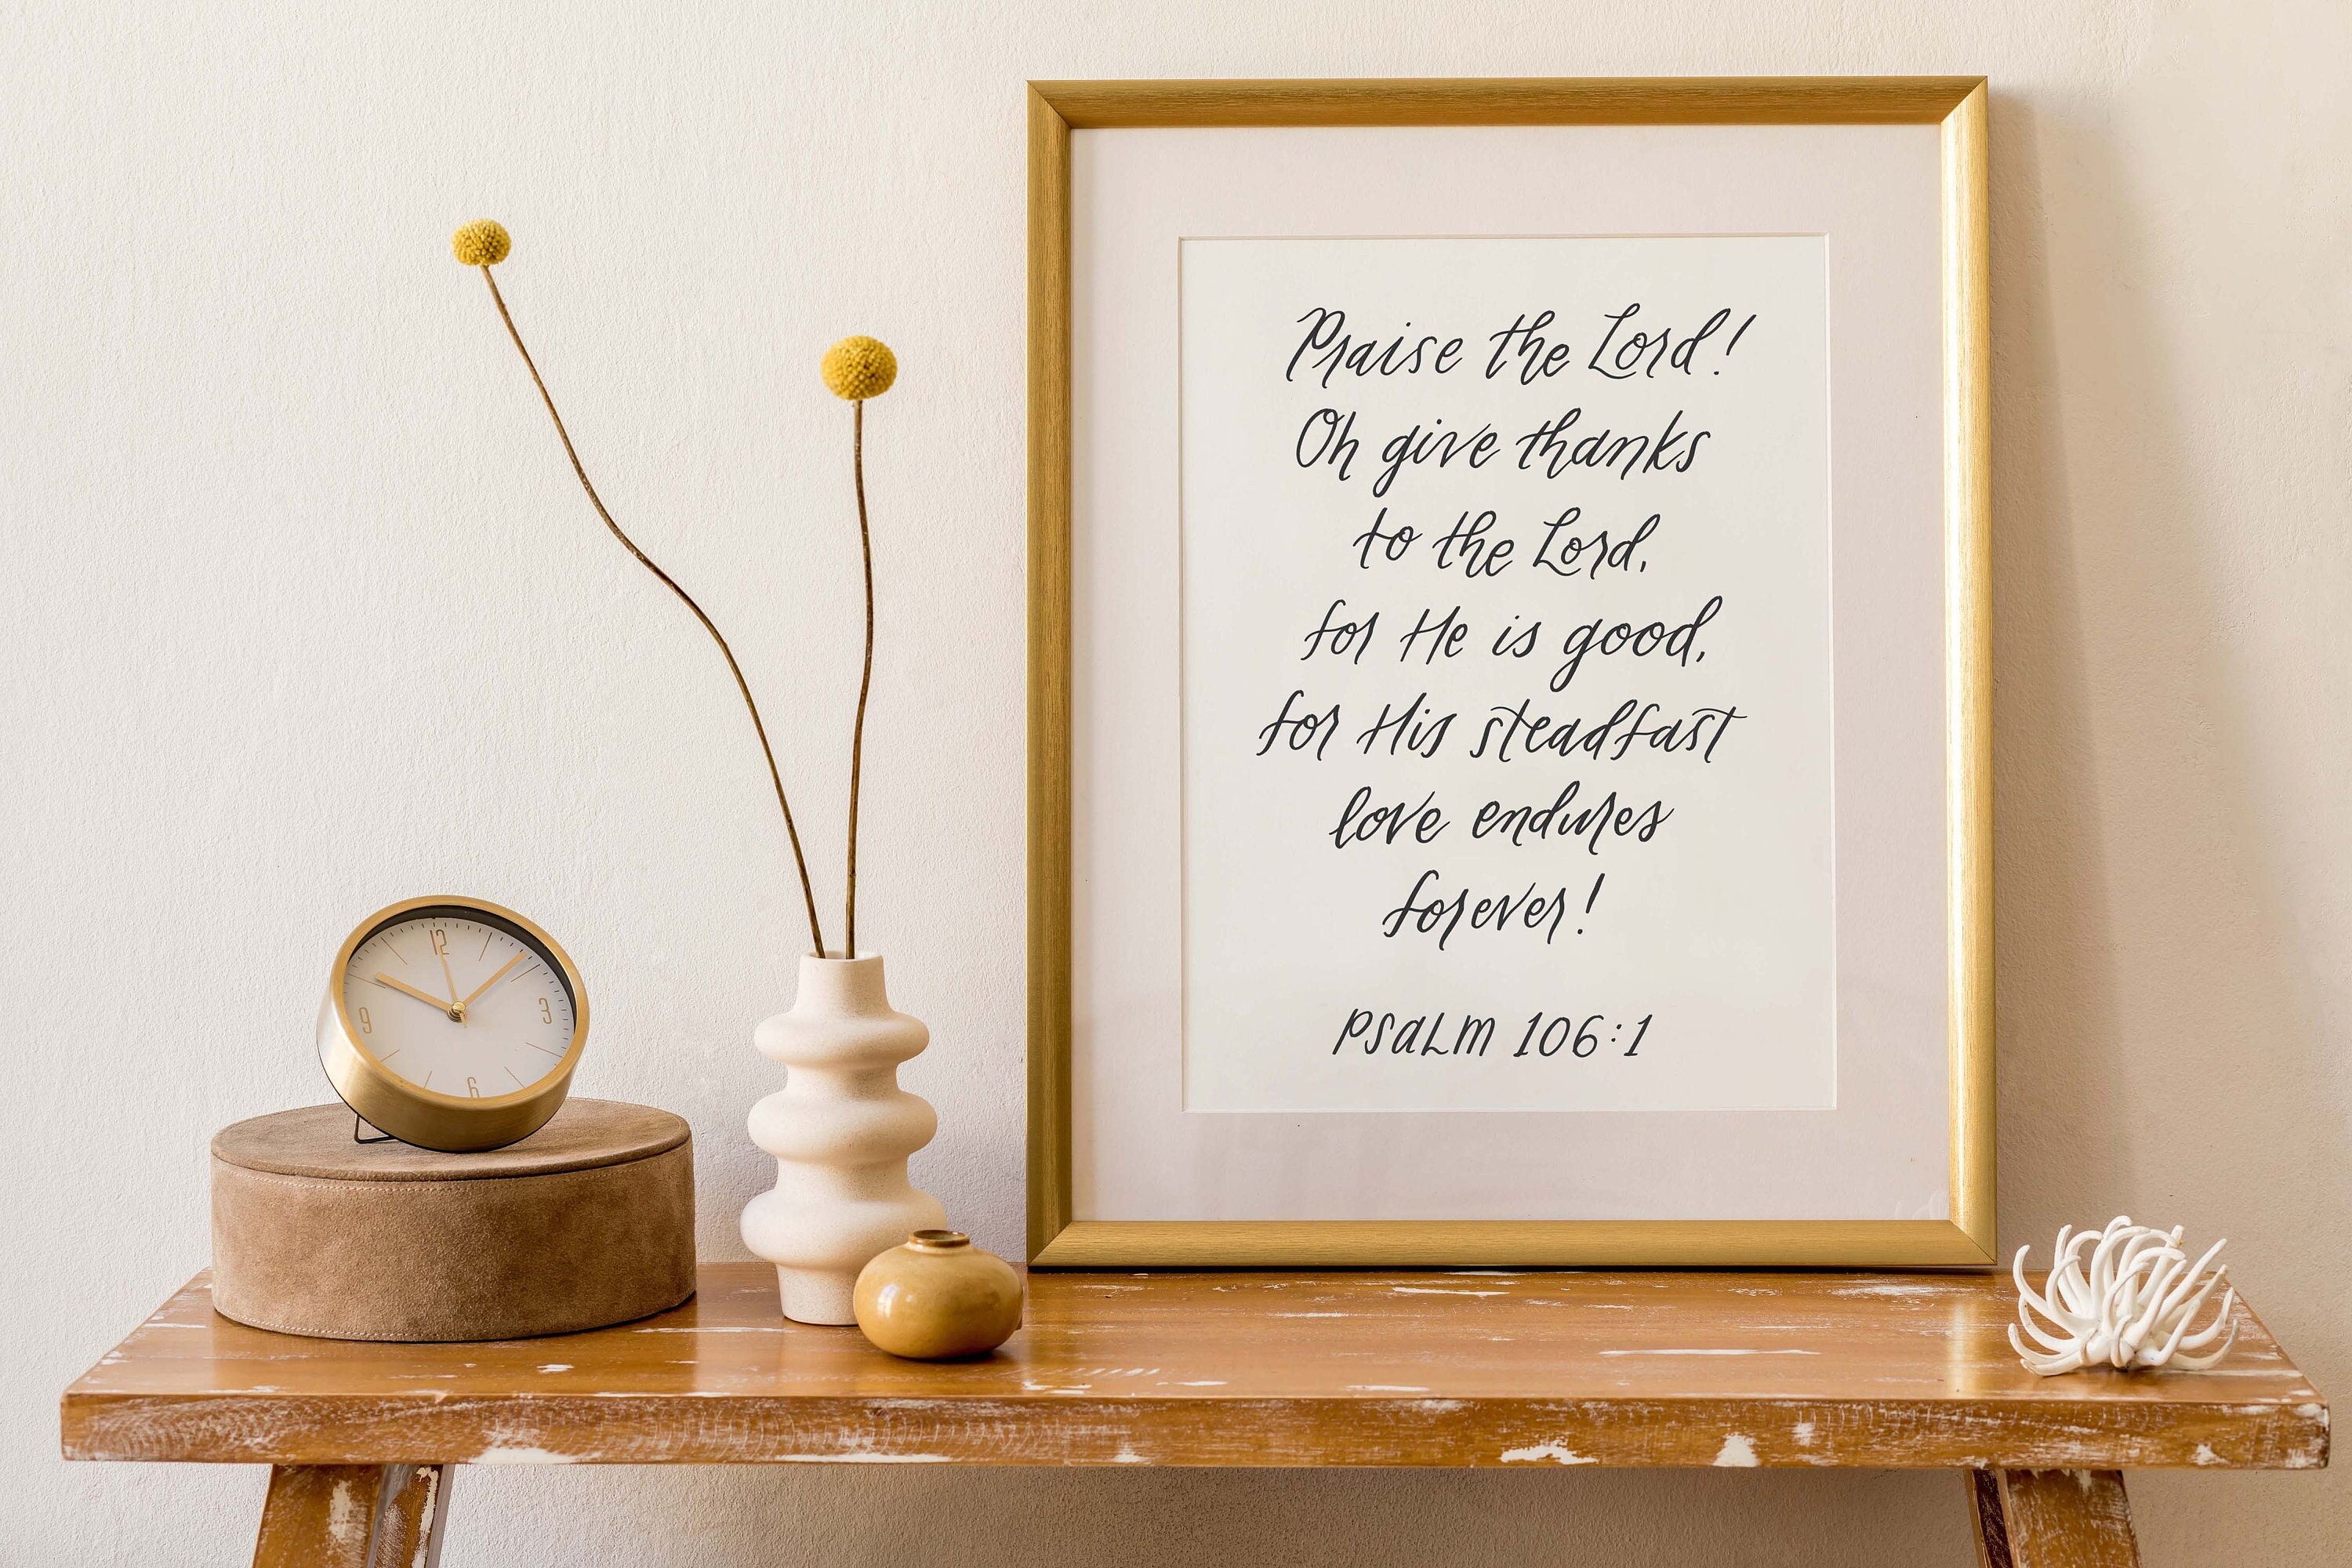 12
3
6
9
Praise the Lord!
Oh give thanks
to the Lord,
for He is good,
for His steadfast
love endures
forever!
PSALM 106:1